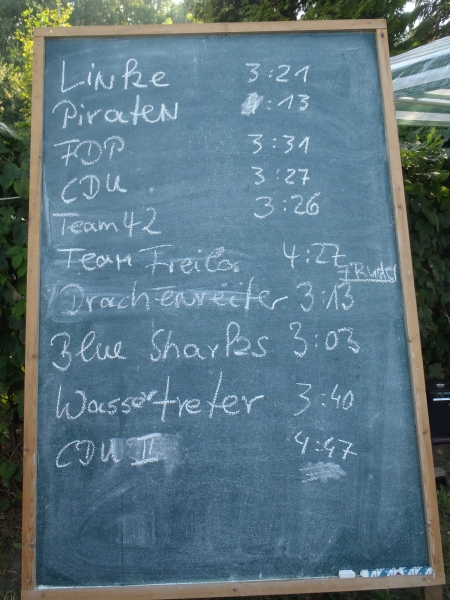 Linke 3:21
Piraten :13
FDP 3:31
CDU 3:27
Team 42 3:26
Team Freilos 4:27
7 Ruder
Drachenreiter 3:13
Blue Sharks 3:03
Wassertreter 3:40
CDU II 4:47